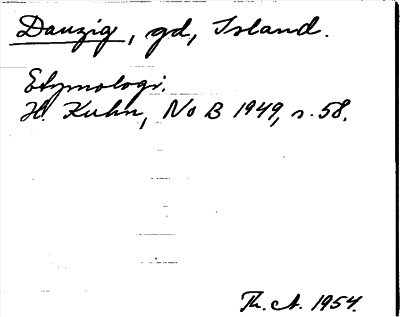 Danzig, gd, Island.
Etymologi.
H. Kuhn, No B 1949, s. 58.
Th. A. 1954.